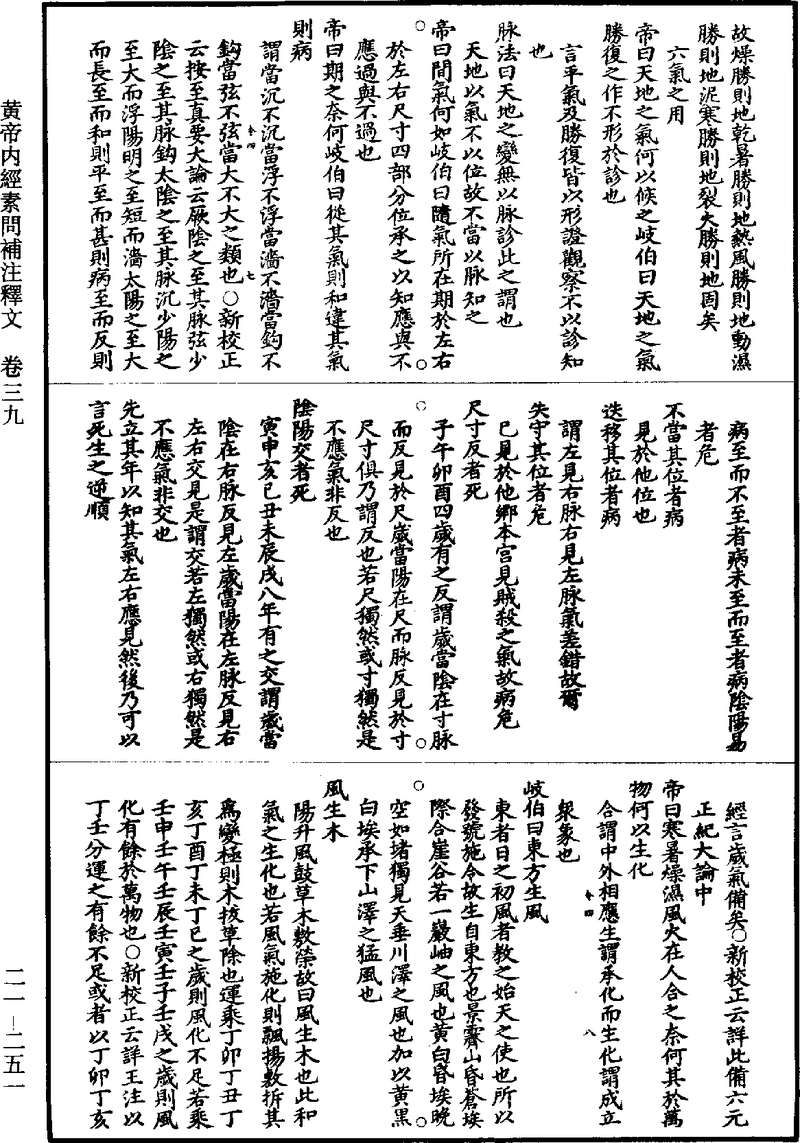 故燥勝則地乾暑勝則地熱風勝則地動濕
勝則地泥寒勝則地裂火勝則地固矣
六氣之用
帝曰天地之氣何以候之岐伯曰天地之氣
勝復之作不形於診也
言平氣及勝復皆以形證觀察不以診知
也
脉法曰天地之變無以脉診此之謂也
天地以氣不以位故不當以脉知之
帝曰間氣何如岐伯曰隨氣所在期於左右
於左右尺寸四部分位承之以知應與不
應過與不過也
帝曰期之奈何岐伯曰從其氣則和違其氣
則病
謂當沉不沉當浮不浮當濇不濇當鈎不
鈎當弦不弦當大不大之類也○新校正
云按至真要大論云厥陰之至其脉弦少
陰之至其脉鈎太陰之至其脉沉少陽之
至大而浮陽明之至短而濇太陽之至大
而長至而和則平至而甚則病至而反則
叁四 七
病至而不至者病未至而至者病陰陽易
者危
不當其位者病
見於他位也
迭移其位者病
謂左見右脉右見左脉氣差錯故爾
失守其位者危
已見於他鄉本宫見賊殺之氣故病危
尺寸反者死
子午卯酉四歲有之反謂歲當陰在寸脉
而反見於尺歲當陽在尺而脉反見於寸
尺寸俱乃謂反也若尺獨然或寸獨然是
不應氣非反也
陰陽交者死
寅申亥巳丑未辰戌八年有之交謂歲當
陰在右脉反見左歲當陽在左脉反見右
左右交見是謂交若左獨然或右獨然是
不應氣非交也
先立其年以知其氣左右應見然後乃可以
言死生之逆順
經言歲氣備矣○新校正云詳此備六元
正紀大論中
帝曰寒暑燥濕風火在人合之奈何其於萬
物何以生化
合謂中外相應生謂承化而生化謂成立
衆象也
叁四 八
岐伯曰東方生風
東者日之初風者教之始天之使也所以
發號施令故生自東方也景霽山昏蒼埃
際合崖谷若一巖岫之風也黄白昏埃晚
空如堵獨見天垂川澤之風也加以黄黑
白埃承下山澤之猛風也
風生木
陽升風鼓草木敷榮故曰風生木也此和
氣之生化也若風氣施化則飄揚敷拆其
爲變極則木拔草除也運乘丁卯丁丑丁
亥丁酉丁未丁巳之歲則風化不足若乘
壬申壬午壬辰壬寅壬子壬戌之歲則風
化有餘於萬物也○新校正云詳王注以
丁壬分運之有餘不足或者以丁卯丁亥
黄帝内經素問補注釋文 卷三九
二一—二五一